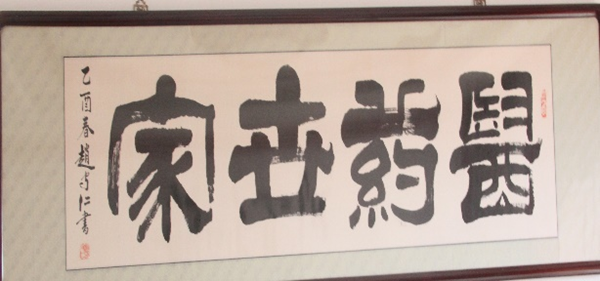 醫药世家
乙酉春趙守仁書